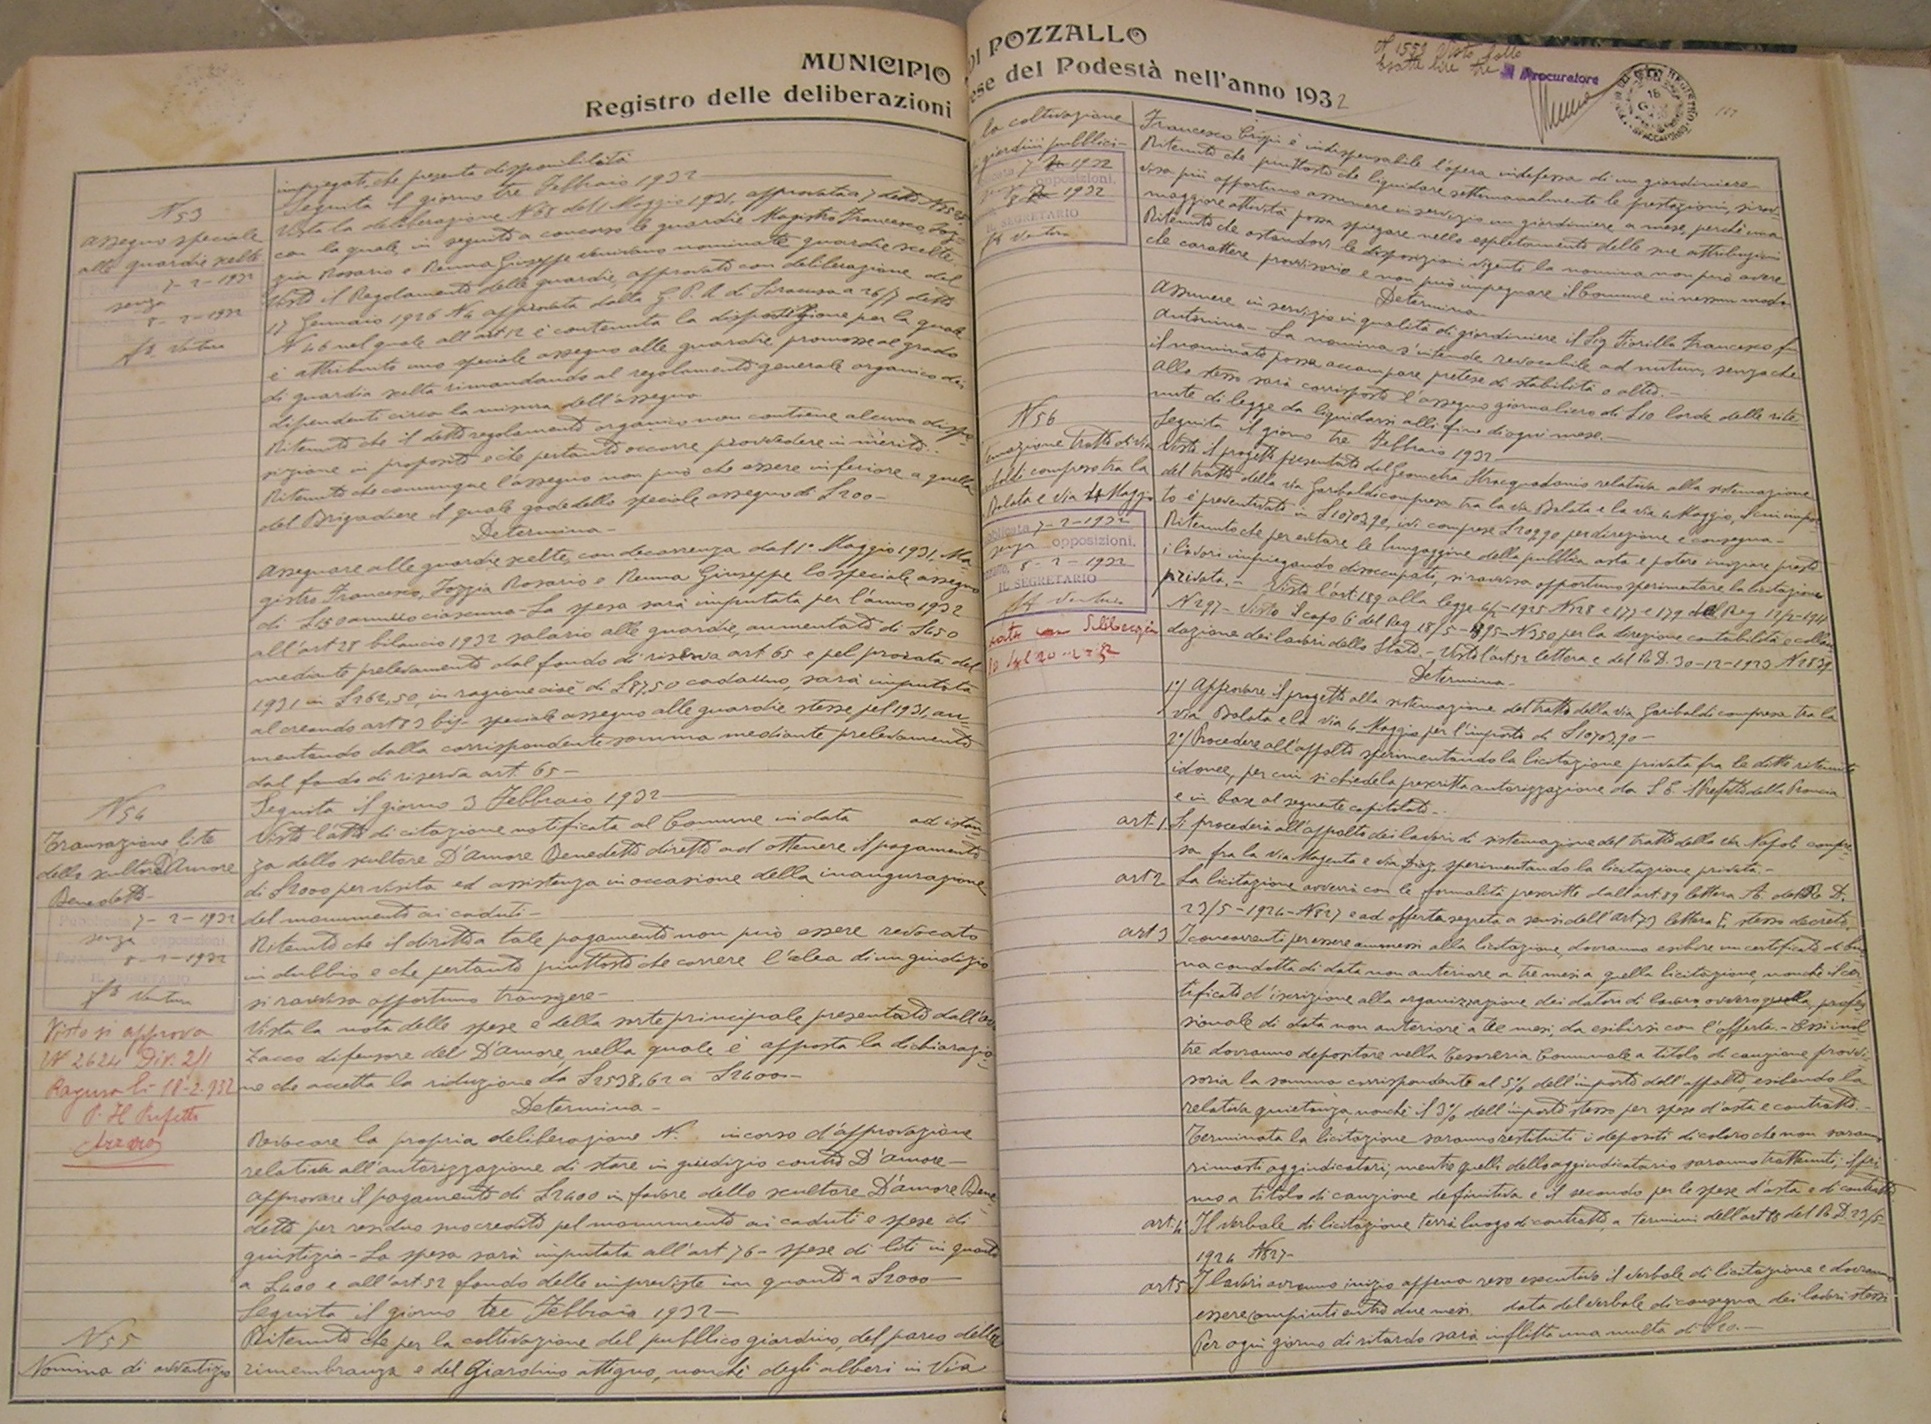 MUNICIPIO DI POZZALLO
Registro delle deliberazioni prese del Podestà nell'anno 1932
impiegati, che presenta disponibilità
Seguita il giorno tre Febbraio 1932
N 53
Assegno speciale
alle guardie scelte
7-2-1932
senza
8-2-1932
fto Ventura
Vista la deliberazione N 68 del 1 Maggio 1931, approvata a 7 detto
con la quale in seguito a concorso le guardie Magistro Francesco,
Rosario e Renna Giuseppe venivano nominate guardie scelte.
Visto il Regolamento delle guardie, approvato con deliberazione del
17 Gennaio 1926 N 4 approvata dalla G. P. A. di Siracusa a 26/7 detto
N 46 nel quale all'art 12 è contenuta la disposizione per la quale
è attribuito uno speciale assegno alle guardie promosse al grado
di guardia scelta rimandando al regolamento generale organico dei
dipendenti circa la misura dell'assegno
Ritenuto che il detto regolamento organico non contiene alcuna dispo-
sizione in proposito e che pertanto occorre provvedere in merito.
Ritenuto che comunque l'assegno non può che essere inferiore a quella
del Brigadiere il quale gode dello speciale assegno di £ 200-
Determina-
Assegnare alle guardie scelte, con decorrenza dal 1° Maggio 1931, Ma-
gistro Francesco, Rosario e Renna Giuseppe lo speciale assegno
di £ 150 annue ciascuna- La spesa sarà imputata per l'anno 1932
all'art 28 bilancio 1932 salario alle guardie, aumentato di £ 450
mediante prelevamento dal fondo di riserva art 65 e pel prorata del
1931 in £ 262,50, in ragione cioè di £ 87,50 cadauno, sarà imputata
al creando art 83 bis- speciale assegno alle guardie scelte pel 1931, au-
mentando dalla corrispondente somma mediante prelevamento
dal fondo di riserva art 65-
Seguita il giorno 3 Febbraio 1932
N 54
Transazione lite
dello scultore D'Amore
Benedetto-
7-2-1932
senza opposizioni.
8-2-1932
IL SEGRETARIO
fto Ventura
Visto si approva
N° 2624 Div. 2/1
Ragusa li 18-2-932
P. Il Prefetto
Visto l'atto di citazione notificata al Comune in data ad istan-
za dello scultore D'Amore Benedetto diretto ad ottenere il pagamento
di £ 2000 per visita ed assistenza in occasione della inaugurazione
del monumento ai caduti-
Ritenuto che il diritto a tale pagamento non può essere revocato
in dubbio e che pertanto piuttosto che correre l'alea di un giudizio
si ravvisa opportuno transigere-
Vista la nota delle spese e della sorte principale presentata dall'avv
Zacco difensore del D'Amore, nella quale è apposta la dichiarazio-
ne che accetta la riduzione da £ 2538,62 a £ 2400-
Determina-
Revocare la propria deliberazione N. in corso d'approvazione
relativa all'autorizzazione di stare in giudizio contro D'Amore-
Approvare il pagamento di £ 2400 in favore dello scultore D'Amore Bene-
detto per residuo suo credito pel monumento ai caduti e spese di
giustizia- La spesa sarà imputata all'art 76- spese di liti in quanto
a £ 400 e all'art 52 fondo delle impreviste in quanto a £ 2000-
Seguita il giorno tre Febbraio 1932-
N 55
Nomina di avventizio
Ritenuto che per la coltivazione del pubblico giardino, del parco delle
rimembranza e del Giardino attiguo, nonchè degli alberi in Via
N 1552 Visto
Esatte lire tre
Il Procuratore
la coltivazione
giardini pubblici-
7-2-1932
opposizioni.
8-2-1932
IL SEGRETARIO
fto Ventura
Francesco Crispi è indispensabile l'opera indefessa di un giardiniere
Ritenuto che piuttosto che liquidare settimanalmente le prestazioni, si rav-
visa più opportuno assumere in servizio un giardiniere a mese, perchè una
maggiore attività possa spiegare nello espletamento delle sue attribuzioni
Ritenuto che ostandovi le disposizioni vigenti la nomina non può avere
che carattere provvisorio e non può impegnare il Comune in nessun modo.
Determina-
Assumere in servizio in qualità di giardiniere il Sig Fiorilla Francesco fu
Antonino- La nomina s'intende revocabile ad nutum, senza che
il nominato possa accampare pretese di stabilità o altro.-
Allo stesso sarà corrisposto l'assegno giornaliero di £ 10 lorde delle rite-
nute di legge da liquidarsi alla fine di ogni mese.-
Seguita il giorno tre Febbraio 1932
N 56
Sistemazione tratto di via
Garibaldi compreso tra la
Balata e via 4 Maggio
Pubblicata 7-2-1932
senza opposizioni.
8-2-1932
IL SEGRETARIO
fto Ventura
Visto il progetto presentato dal Geometra Stracquadanio relativa alla sistemazione
del tratto della via Garibaldi compreso tra la via Balata e la via 4 Maggio, il cui impor-
to è preventivato in £ 10703,90, ivi comprese £ 209,90 per direzione e consegna-
Ritenuto che per evitare le lungaggine della pubblica asta e potere iniziare presto
i lavori impiegando disoccupati, si ravvisa opportuno sperimentare la licitazione
privata.- Visto l'art 189 alla legge 4/2-1915 N 148 e 177 e 179 del Reg 12/2-1911
N 297- Visto il capo 6 del Reg 18/5-1895- N 350 per la direzione contabilità e collau-
dazione dei lavori dello Stato.- Visto l'art 52 lettera e del R. D. 30-12-1923 N 2839
Determina-
1°/ Approvare il progetto alla sistemazione del tratto della via Garibaldi compresa tra la
via Balata e la via 4 Maggio per l'importo di £ 10703,90-
2°/ Procedere all'appalto sperimentando la licitazione privata fra le ditte ritenute
idonee, per cui si chiede la prescritta autorizzazione da S. E. il Prefetto della Provincia
e in base al seguente capitolato-
art. 1 Si procederà all'appalto dei lavori di sistemazione del tratto della via Napoli compre-
sa fra la via Magenta e via Diaz sperimentando la licitazione privata-
art 2 La licitazione avverrà con le formalità prescritte dall'art 89 lettera A del R. D.
23/5-1924-N 827 e ad offerta segreta a sensi dell'art 73 lettera C, stesso decreto.
art 3 I concorrenti per essere ammessi alla licitazione, dovranno esibire un certificato di buo-
na condotta di data non anteriore a tre mesi a quella licitazione, nonchè il cer-
tificato d'iscrizione alla organizzazione dei datori di lavoro, ovvero quella profes-
sionale di data non anteriore a tre mesi, da esibirsi con l'offerta.- Essi inol-
tre dovranno depositare nella Tesoreria Comunale a titolo di cauzione provvi-
soria la somma corrispondente al 5% dell'importo dell'appalto, esibendo la
relativa quietanza nonchè il 3% dell'importo stesso per spese d'asta e contratto.-
Terminata la licitazione saranno restituiti i depositi di coloro che non saranno
rimasti aggiudicatari; mentre quelli dello aggiudicatario saranno trattenuti; il pri-
mo a titolo di cauzione definitiva e il secondo per le spese d'asta e di contratto
art. 4 Il verbale di licitazione terrà luogo di contratto a termini dell'art 88 del R. D. 23/5-
1924 N 827-
art 5 I lavori avranno inizio appena reso esecutivo il verbale di licitazione e dovranno
essere compiuti entro due mesi data del verbale di consegna dei lavori stessi
Per ogni giorno di ritardo sarà inflitta una multa di £ 20.-